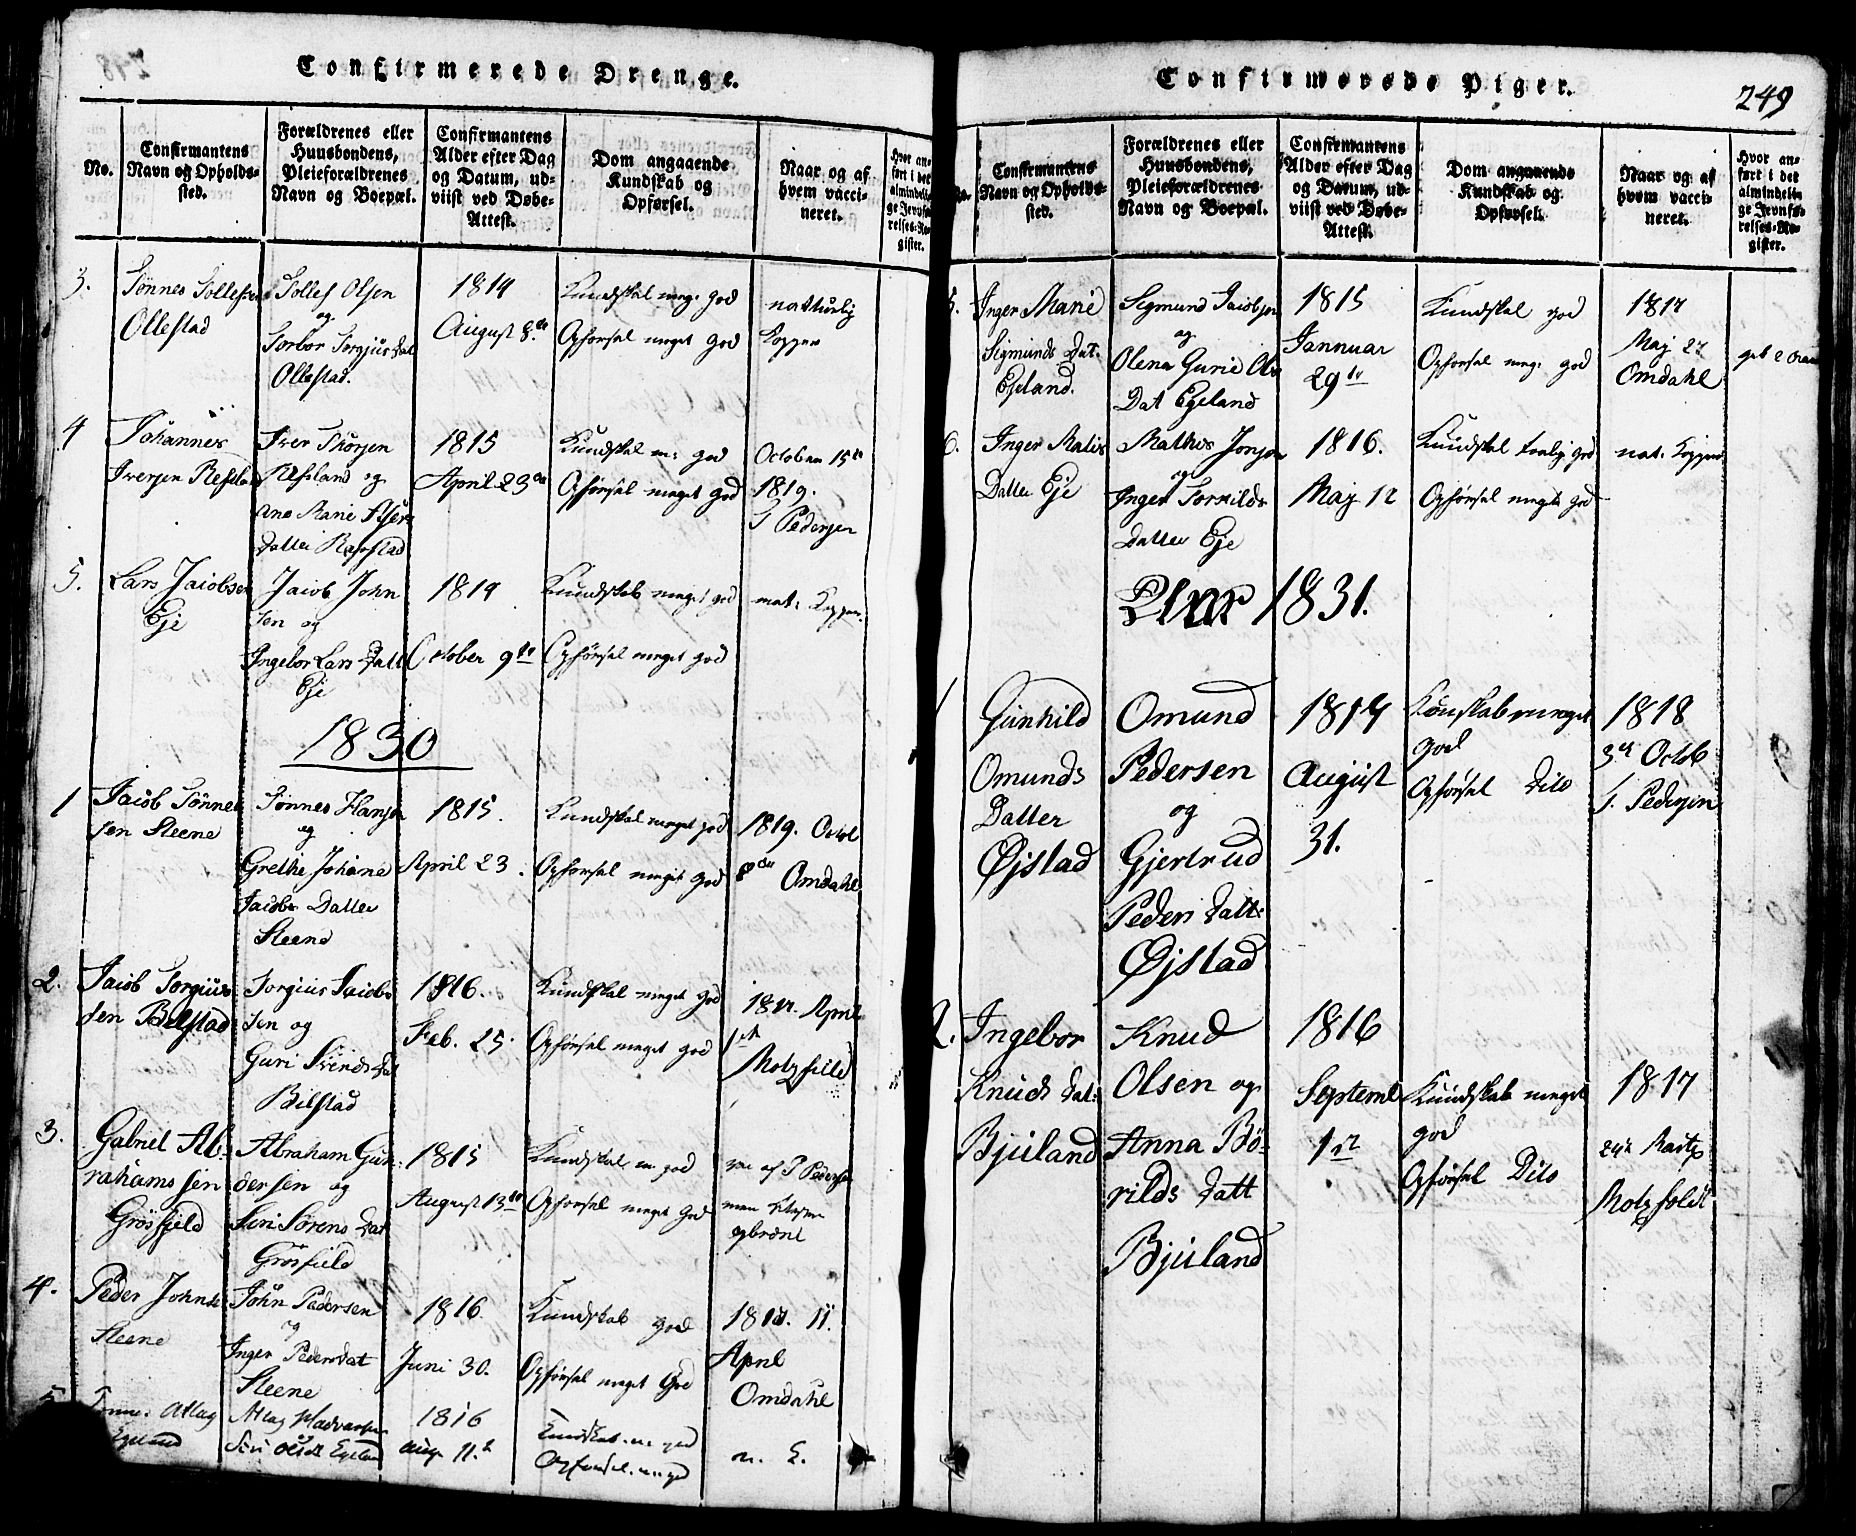 Confirmerede Drenge.
No.
Confirmantens
Navn og Opholds-
sted.
Forældrenes eller
Huusbondens,
Pleieforældrenes
Navn og Boepæl.
Confirmantens
Alder efter Dag
og Datum, ud-
viist ved Døbe-
Attest.
Dom angaaende
Kundskab og
Opførsel.
Naar og af
hvem vacci-
neret.
Hvor an-
ført i det
almindeli-
ge Jevnfø-
relses-Re-
gister.
3.
Tønnes Tollefsen
Ollestad
Tollef Olsen
og
Torbor Torgjus Dat
Ollestad.
1814
August 8de
Kundskab meg: god
Opførsel meget god
natturlig
Kopper
4
Johannes
Iversen Refsland
Iver Thorsen
Refsland og
Ane Marie
Datter Refsland
1815
April 23de
Kundskab m: god
Opførsel meget god
October 15de
1819.
J Pedersen
5.
Lars Jacobsen
Eje
Jacob John
sen og
Ingebor Lars Datt
Eje
1814
October 9de
Kundskab meget god
Opførsel meget god
nat: Kopper.
1830
1
Jacob Tønne
sen Steene
Tønnes Hansen
og
Grethe Johane
Jacobs Datter
Steene
1815.
April 23.
Kundskab meget god
Opførsel meget god
1819. Octob
8de Omdahl
2.
Jacob Torgius
sen Bilstad
Torgius Jacob
sen og
Guri Svends Dat
Bilstad
1816.
Feb. 25.
Kundskab meget god
Opførsel meget god
1817. April
1ste
Motzfeldt
3.
Gabriel Ab-
rahamssen
Grøsfjeld
Abraham Gun-
dersen og
Siri Sørens Dat
Grøsfjeld
1815
August 13de
Kundskab m god
Opførsel meget god
vac af P Pedersen
men
4.
Peder Johns
Steene
John Pedersen
og
Inger Pedersdat
Steene
1816
Juni 30.
Kundskab god
Opførsel meget god
11.
April
Omdahl
5
Tønnes Atlag
Egeland
Atlag
Siri Olsdt Egeland
1816
Aug. 11.
Kundskab. m god
Opførsel. m god
n. K.
Confirmerede Piger.
249
No.
Confirmantens
Navn og Opholds-
sted.
Forældrenes eller
Huusbondens,
Pleieforældrenes
Navn og Boepæl.
Confirmantens
Alder efter Dag
og Datum, ud-
viist ved Døbe-
Attest.
Dom angaaende
Kundskab og
Opførsel.
Naar og af
hvem vacci-
neret.
Hvor an-
ført i det
almindeli-
ge Jevnfø-
relses-Re-
gister.
5.
Inger Marie
Sigmunds Dat.
Egeland.
Sigmund Jacobsen
og
Olena Gurie Ols
Dat Egeland
1815
Jannuar
29de
Kundskab god
Opførsel meg: god
1817
Maj 27
Omdahl
6.
Inger Malis
Datter Eje
Mathis Jonsen
og
Inger Tornilds
Datter Eje
1816.
Maj 12
Kundskab temlig god
Opførsel meget god
nat: Kopper
Aar 1831.
1
Gunhild
Omunds
Datter
Øjstad
Omund
Pedersen
og
Gjertrud
Peders Datt:
Øjstad
1814
August
31.
Kundskab meget
god
Opførsel Dito
1818
3de Octob
J. Pedersen
2.
Ingebor
Knuds Dat:
Bjuland
Knud
Olsen og
Anna Bø-
rilds Datt
Bjuland
1816
Septemb
1st
Kundskab meget
god
Opførsel Dito
1817
Martz
Motzfeldt